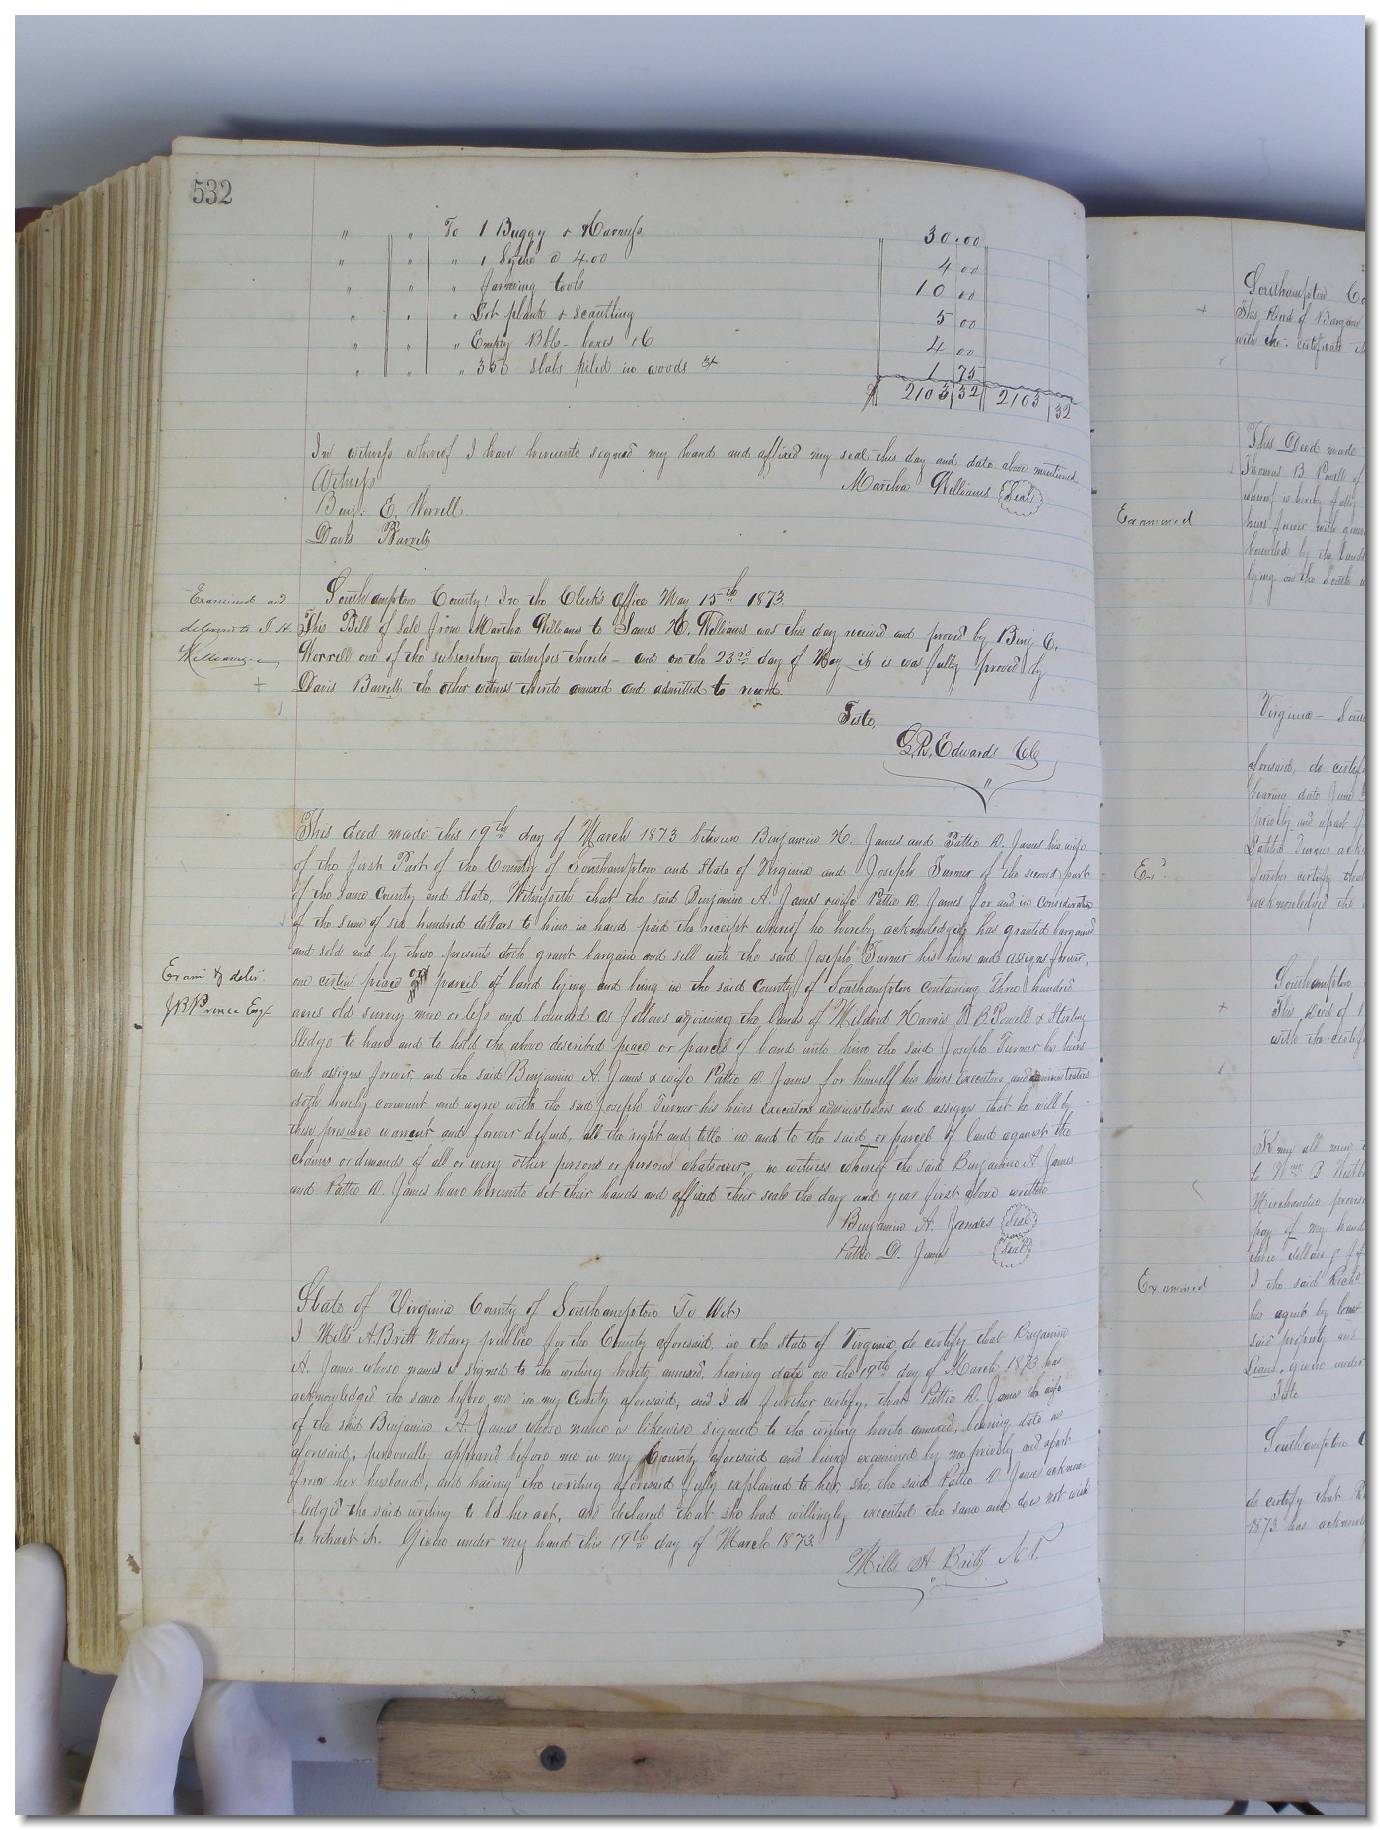 532
" " To 1 Buggy & Harness 30.00
" " " 1 Sythe @ 4.00 4 00
" " " farming tools 10 00
" " " Lot plank & scantling 5 00
" " " Empty Bbls - boxes &c 4 00
" " " slabs piled in woods 1 75
$ 2103 32 2103 32
In witness whereof I have hereunto signed my hand and affixed my seal this day and date above mentioned
Witness Martha Williams Seal
Benj. E. Worrell
Davis Barrett
Southampton County! In the Clerk's Office May 15th 1873.
This Bill of Sale from Martha Williams to James H. Williams was this day received and proved by Benj E.
Worrell one of the subscribing witnesses thereto - and on the 23rd day of May it is was fully proved by
Davis Barrett the other witness thereto annexed and admitted to record.
Teste,
G.R. Edwards Clk
Examined and
deliverd to J. H.
Williams
This deed made this 19th day of March 1873 between Benjamin A. James and Pattie D. James his wife
of the first Part of the County of Southampton and State of Virginia and Joseph Turner of the second part
of the same County and State, Witnesseth that the said Benjamin A. James & wife Pattie D. James for and in consideration
of the sum of six hundred dollars to him in hand paid the receipt whereof he hereby acknowledges has granted bargained
and sold and by these presents doth grant bargain and sell unto the said Joseph Turner his heirs and assigns forever,
one certain peace or parcel of land lying and being in the said County of Southampton containing Three hundred
acres old survey more or less and bounded as follows adjoining the lands of Mildred Harris B Powell & Sterling
Sledge to have and to hold the above described peace or parcel of land unto him the said Joseph Turner his heirs
and assigns forever, and the said Benjamin A. James & wife Pattie D. James for himself his heirs executors and administrators
doth hereby covenant and agree with the said Joseph Turner his heirs executors administrators and assigns that he will by
these presence warrent and forever defend, all the right and title in and to the said or parcel of land against the
claims or demands of all or every other persons or persons whatsoever, in witness whereof the said Benjamin A. James
and Pattie D. James have hereunto set their hands and affixed their seals the day and year first above written
Benjamin A. James Seal
Pattie D. James Seal
Exam & deliv.
J B Prince Esq
State of Virginia County of Southampton To Wit,
I Mills A. Britt Notary publice for the County aforesaid, in the State of Virginia, do certify that Benjamin
A. James whose name is signed to the writing hereto annexed, bearing date on the 19th day of March 1873 has
acknowledged the same before me in my County aforesaid, and I do further certify, that Pattie D. James the wife
of the said Benjamin A. James whose name is likewise signed to the writing hereto annexed, bearing date as
aforesaid, personally appeared before me in my County aforesaid and being examined by me privily and apart
from her husband, and having the writing aforesaid fully explained to her, she, the said Pattie D. James acknow-
ledged the said writing to be her act, and declared that she had willingly executed the same and does not wish
to retract it. Given under my hand this 19th day of March 1873.
Mills A Britt N.P.
Southampton Co
This Deed of Bargain
with the certificate
This Deed made
Thomas B Powell of
whereof is hereby fully
heirs forever with
bounded by the lands
lying on the South
Examined
Virginia - South
foresaid, do certify
bearing date June
privily and apart
further certify that
acknowledged the
Southampton
This deed of
with the certif
Know all men
to Wm B
Merchandise
pay of my hand
I the said
his agent by
said property and
given under
Teste
Examined
Southampton C
do certify that
1873 has acknow